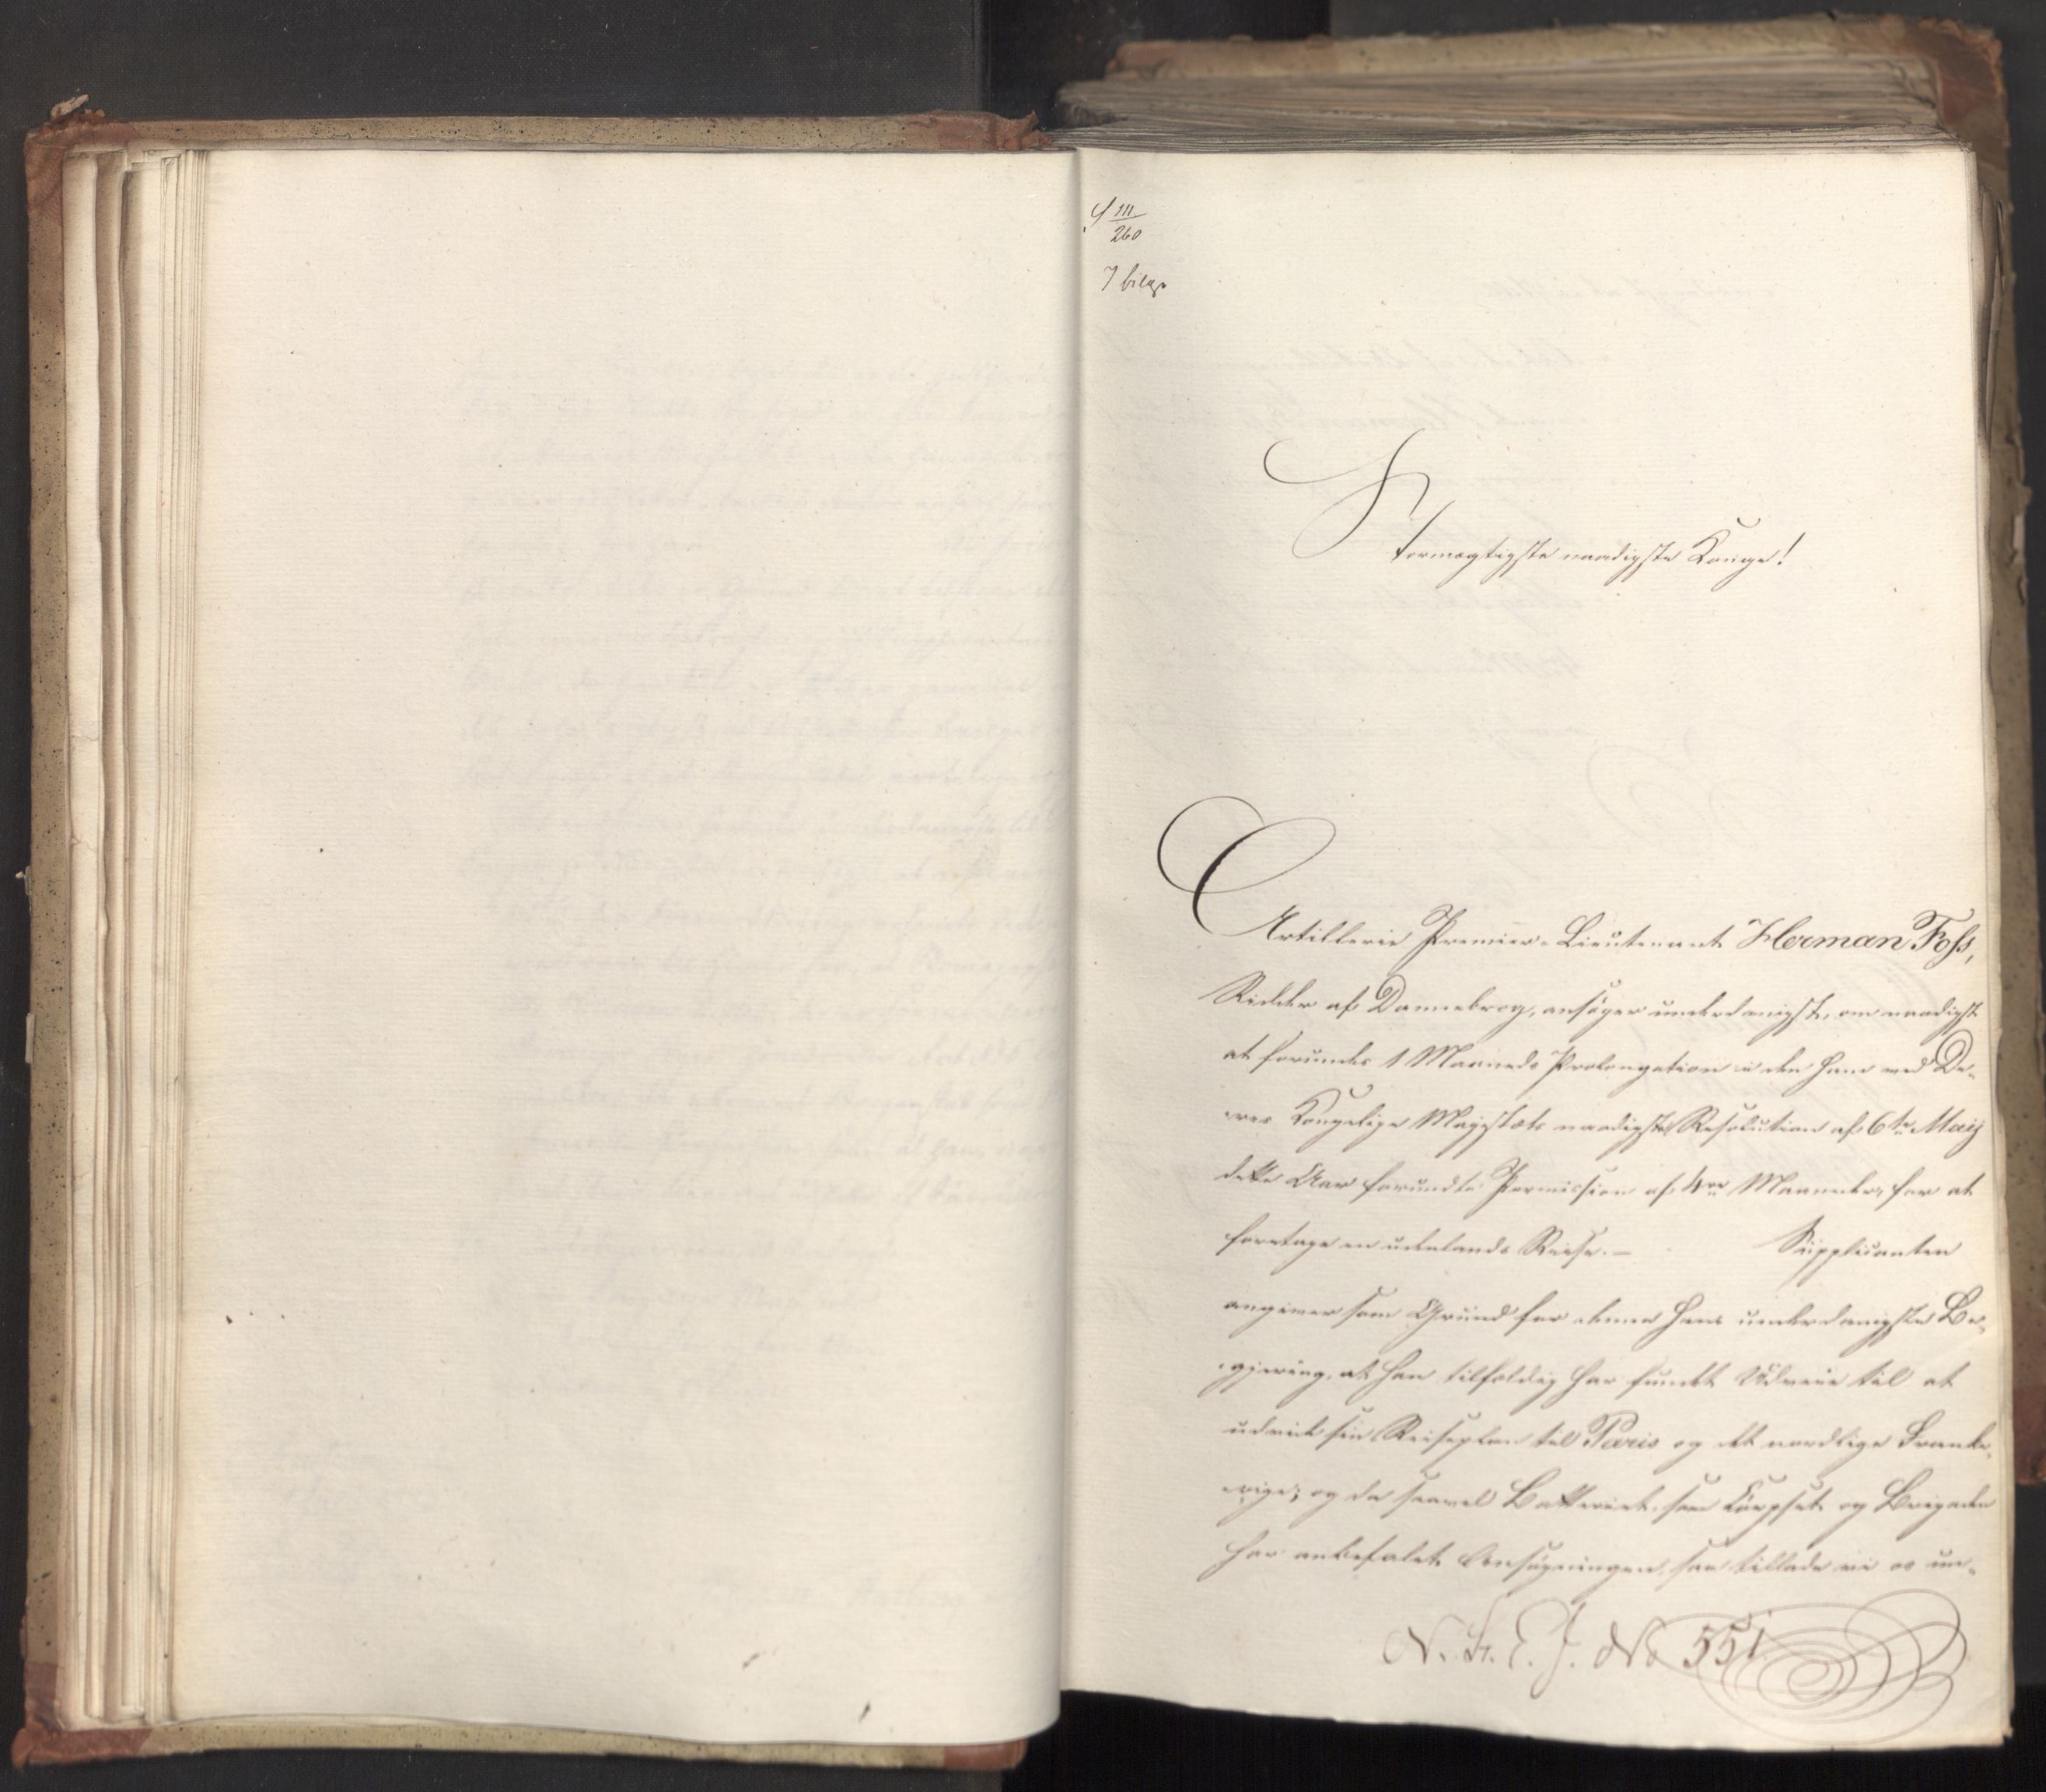 111
260
7 bilag
Stormægtigste naadigste Konge!
Artillerie Premier-Lieutenant Herman Foss,
Ridder af Dannebrog, ansøger underdanigst, om naadigst
at forundes 1 Maaneds Prolongation i den ham ved De-
res Kongelige Majestæts naadigste Resolution af 6te Maij
dette Aar forundte Permission af 4re Maaneder, for at
foretage en udenlands Reise. — Supplicanten
angiver som Grund for denne hans underdanigste Be-
gjering, at han tilfældig har fundet Udveie til at
udvide sin Reiseplan til Paris og det nordlige Franke-
rige; og da saavel Batteriet, som Corpset og Brigaden
har anbefalet Ansøgningen, saa tillade vi os un-
N. Fr. E. J. No 551